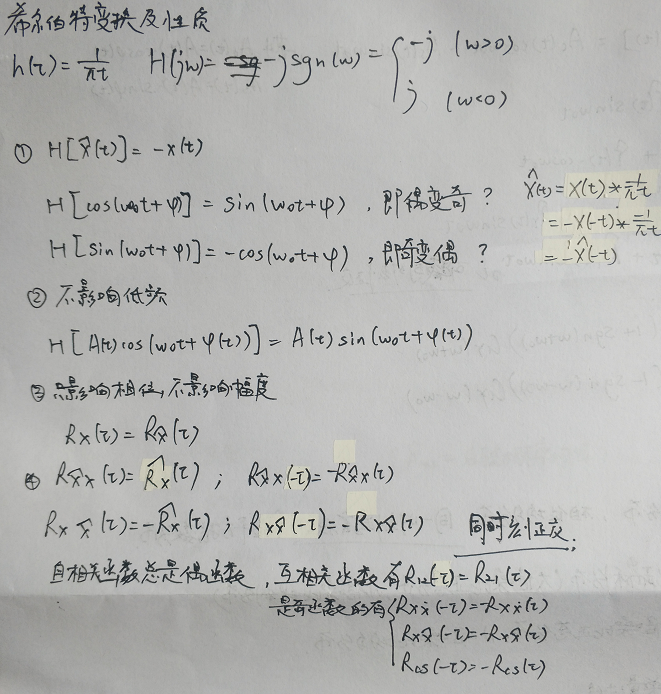 希尔伯特变换及性质
h(τ)=1/πt H(jw)= -jsgn(w) = { -j (w>0)
j (w<0)
① H[x̂(t)] = -x(t)
H[cos(w₀t+φ)] = sin(w₀t+φ) , 即偶变奇?
x̂(t) = x(t)*1/πt
H[sin(w₀t+φ)] = -cos(w₀t+φ) , 即奇变偶?
= -x(-t)*-1/πt
= -x̂(-t)
② 不影响低频
H[A(t)cos(w₀t+φ(t))] = A(t)sin(w₀t+φ(t))
③ 只影响相位,不影响幅度
Rx(τ) = Rx̂(τ)
④ Rx̂x(τ) = R̂x(τ) ; Rx̂x(-τ) = -Rx̂x(τ)
Rxx̂(τ) = -R̂x(τ) ; Rxx̂(-τ) = -Rxx̂(τ) 同时刻正交;
自相关函数总是偶函数 , 互相关函数有R₁₂(-τ) = R₂₁(τ)
是奇函数的有 { Rxẋ(-τ) = -Rxẋ(τ)
Rxx̂(-τ) = -Rxx̂(τ)
Rcs(-τ) = -Rcs(τ)